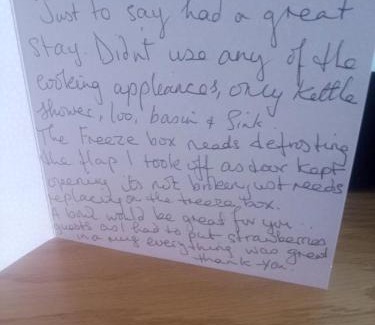 Just to say had a great
stay. Didn't use any of the
cooking appliances, only kettle
shower, loo, basin & Sink.
The Freeze box needs defrosting
the flap I took off as door kept
opening its not broken, just needs
replacing on the freeze box.
A bowl would be great for your
guests as I had to put strawberries
in a mug everything was great
thank-you